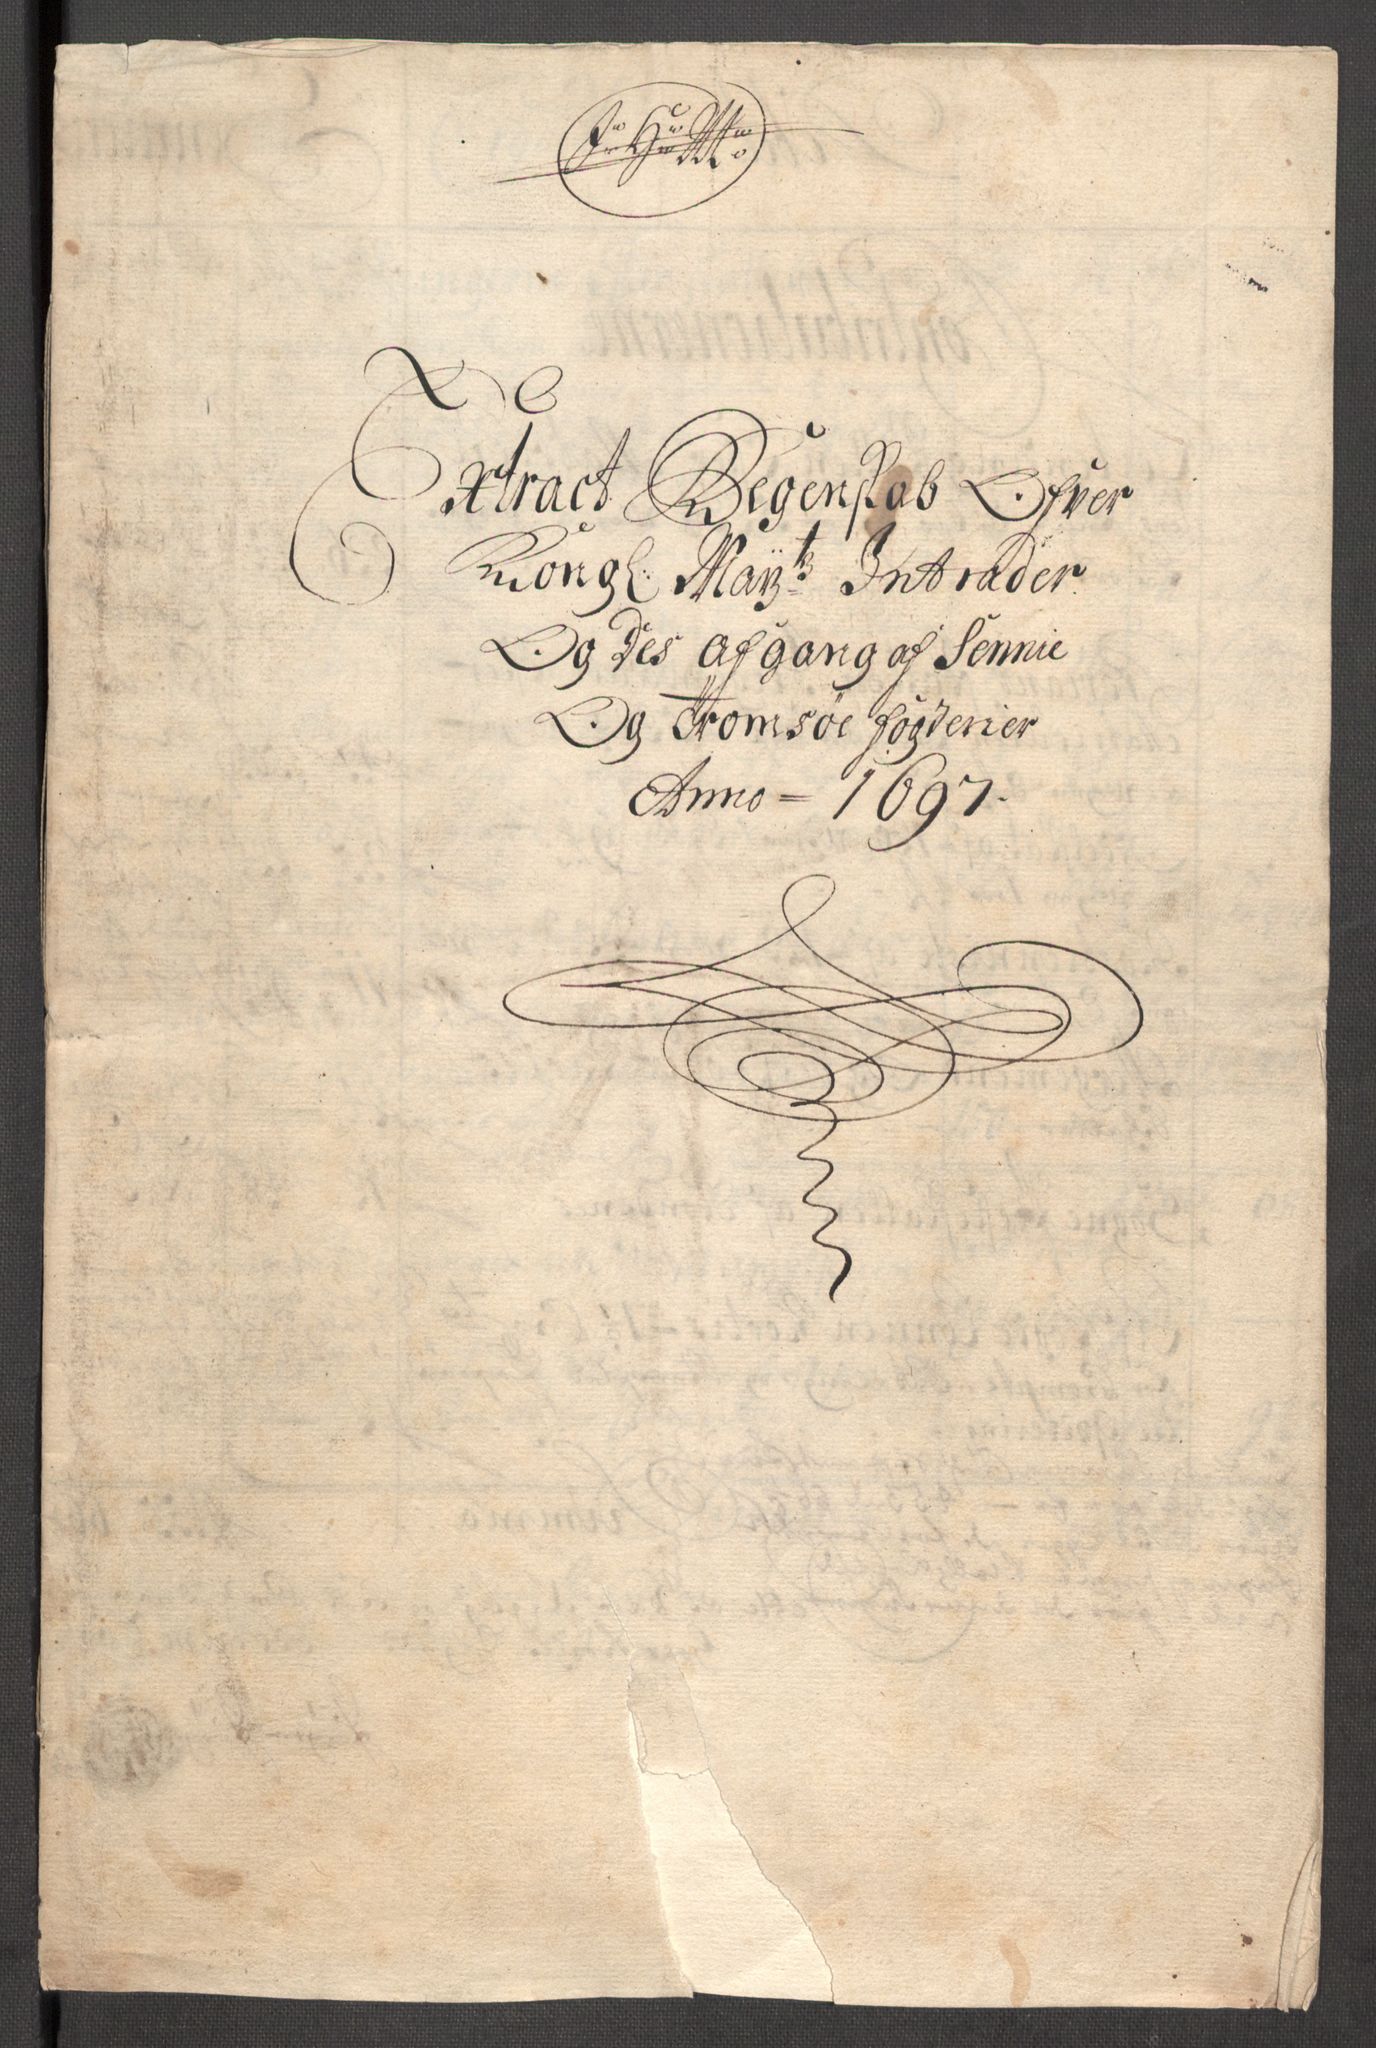 Extract Regenskab Ofver
Kongl: Mayts Intrader
Og des afgang af Sennie
Og Tromsøe fogderier
Anno = 1697.